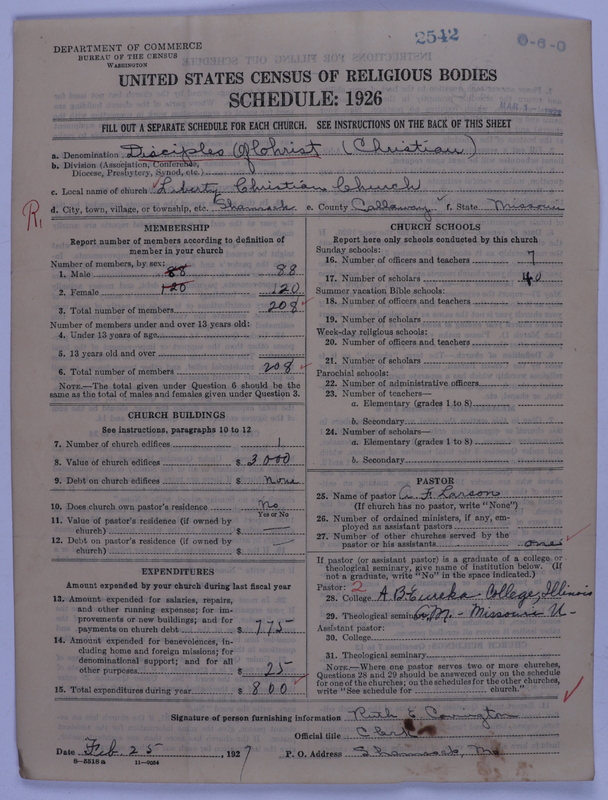 2542
0-8-0
DEPARTMENT OF COMMERCE
BUREAU OF THE CENSUS
WASHINGTON
UNITED STATES CENSUS OF RELIGIOUS BODIES
SCHEDULE: 1926
FILL OUT A SEPARATE SCHEDULE FOR EACH CHURCH. SEE INSTRUCTIONS ON THE BACK OF THIS SHEET
a. Denomination Disciples Of Christ (Christian)
b. Division (Association, Conference,
Diocese, Presbytery, Synod, etc.)
c. Local name of church Liberty Christian Church
d. City, town, village, or township, etc. Shamrock e. County Callaway f. State Missouri
R1
MEMBERSHIP
Report number of members according to definition of
member in your church
Number of members, by sex:
1. Male 88 88
2. Female 120 120
3. Total number of members 208
Number of members under and over 13 years old:
4. Under 13 years of age
5. 13 years old and over
6. Total number of members 208
NOTE.—The total given under Question 6 should be the
same as the total of males and females given under Question 3.
CHURCH BUILDINGS
See instructions, paragraphs 10 to 12
7. Number of church edifices 1
8. Value of church edifices $ 3000
9. Debt on church edifices $ None
10. Does church own pastor's residence No
Yes or No
11. Value of pastor's residence (if owned by
church) $
12. Debt on pastor's residence (if owned by
church) $
EXPENDITURES
Amount expended by your church during last fiscal year
13. Amount expended for salaries, repairs,
and other running expenses; for im-
provements or new buildings; and for
payments on church debt $ 775
14. Amount expended for benevolences, in-
cluding home and foreign missions; for
denominational support; and for all
other purposes $ 25
15. Total expenditures during year $ 800
CHURCH SCHOOLS
Report here only schools conducted by this church
Sunday schools:
16. Number of officers and teachers 7
17. Number of scholars 40
Summer vacation Bible schools:
18. Number of officers and teachers
19. Number of scholars
Week-day religious schools:
20. Number of officers and teachers
21. Number of scholars
Parochial schools:
22. Number of administrative officers
23. Number of teachers—
a. Elementary (grades 1 to 8)
b. Secondary
24. Number of scholars—
a. Elementary (grades 1 to 8)
b. Secondary
PASTOR
25. Name of pastor A. F. Larson
(If church has no pastor, write "None")
26. Number of ordained ministers, if any, em-
ployed as assistant pastors
27. Number of other churches served by the
pastor or his assistants one
If pastor (or assistant pastor) is a graduate of a college or
theological seminary, give name of institution below. (If
not a graduate, write "No" in the space indicated.)
Pastor: 2
28. College A.B. Eureka College, Illinois
29. Theological seminary A.M. - Missouri U -
Assistant pastor:
30. College
31. Theological seminary
NOTE.—Where one pastor serves two or more churches,
Questions 28 and 29 should be answered only on the schedule
for one of the churches; on the schedules for the other churches,
write "See schedule for church."
Signature of person furnishing information Ruth E. Carrington
Official title Clerk
Date Feb. 25, 1927 P. O. Address Shamrock, Mo
8-5518 a 11-9054